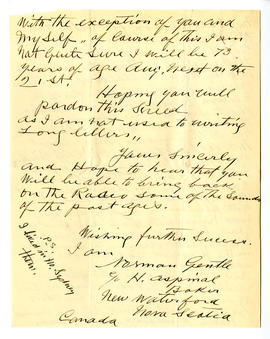 With the exception of you and
Myself, of course of this I am
Not Quite Sure I will be 73
Years of age Aug. Next on the
21st.
Hoping you will
pardon this Screed
as I am not used to writing
Long letters,,
Yours Sincerly
and Hope to hear that you
Will be able to bring back
on the Radio some of the Sounds
of the past ages.
Wishing further Sucess.
I am
Norman Gentle
c/o H. Aspinal
Baker
New Waterford
Nova Scotia
Canada
P.S.
I lived in N. Sydney